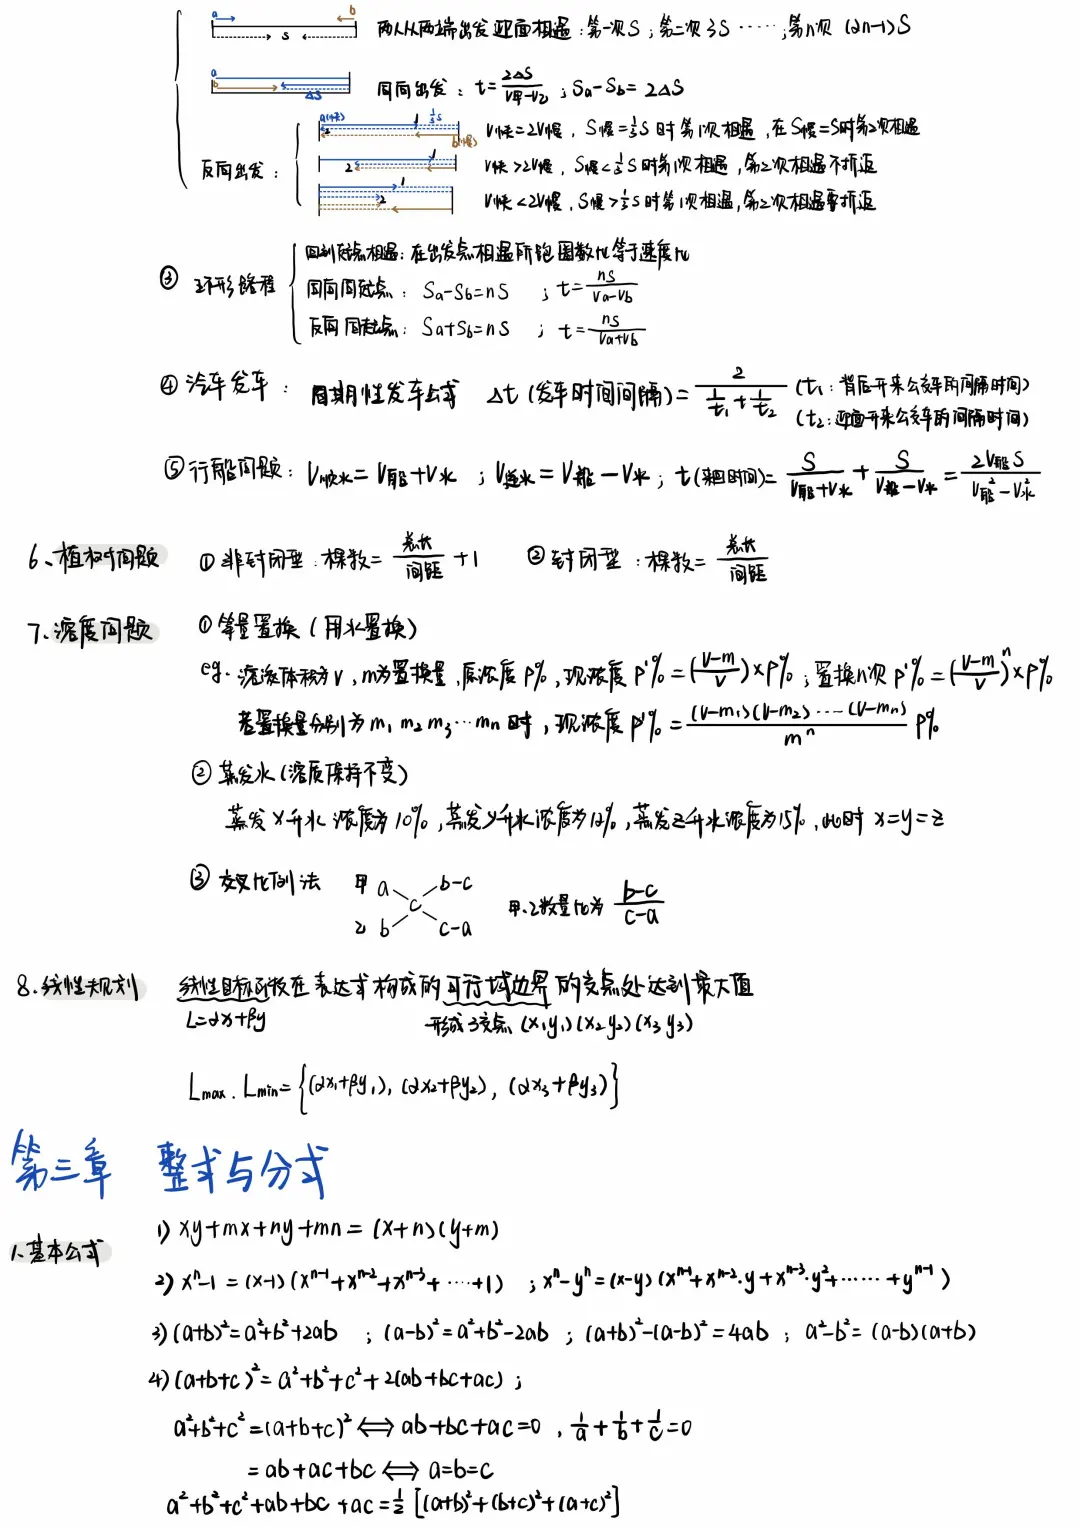 a b
S
两人从两端出发迎面相遇：第一次S；第二次3S……；第n次 (2n-1)S
a
b
ΔS
同向出发：t=2ΔS/(V甲-V乙)；Sa-Sb=2ΔS
反向出发：
a(快) 1 ½S
2 b(慢)
V快=2V慢，S慢=½S时第1次相遇，在S慢=S时第2次相遇
1
2
V快>2V慢，S慢<½S时第1次相遇，第2次相遇不折返
1
2
V快<2V慢，S慢>½S时第1次相遇，第2次相遇要折返
③ 环形路程
回到起点相遇：在出发点相遇所跑圈数比等于速度比
同向同起点：Sa-Sb=nS ；t=nS/(Va-Vb)
反向同起点：Sa+Sb=nS ；t=nS/(Va+Vb)
④ 汽车发车：周期性发车公式 Δt(发车时间间隔)=2/(1/t₁+1/t₂) (t₁：背后开来公交车的间隔时间)
(t₂：迎面开来公交车的间隔时间)
⑤ 行船问题：V顺水=V船+V水；V逆水=V船-V水；t(来回时间)=S/(V船+V水)+S/(V船-V水)=2V船S/(V船²-V水²)
6、植树问题 ① 非封闭型：棵数=总长/间距+1 ② 封闭型：棵数=总长/间距
7、浓度问题 ① 等量置换(用水置换)
eg. 溶液体积为v，m为置换量，原浓度p%，现浓度p'%=((v-m)/v)×p%；置换n次p'%=((v-m)/v)ⁿ×p%
若置换量分别为m₁ m₂ m₃…mn时，现浓度p'%=(v-m₁)(v-m₂)……(v-mn)/mⁿ p%
② 蒸发水(溶质保持不变)
蒸发x升水浓度为10%，蒸发y升水浓度为12%，蒸发z升水浓度为15%，此时x=y=z
③ 交叉比例法
甲 a b-c
c
乙 b c-a
甲、乙数量比为 (b-c)/(c-a)
8.线性规划 线性目标函数在表达式构成的可行域边界的交点处达到最大值
L=αx+βy 形成3交点(x₁y₁)(x₂y₂)(x₃y₃)
Lmax．Lmin={(αx₁+βy₁), (αx₂+βy₂), (αx₃+βy₃)}
第三章 整式与分式
1、基本公式
1) xy+mx+ny+mn=(x+n)(y+m)
2) xⁿ-1=(x-1)(xⁿ⁻¹+xⁿ⁻²+xⁿ⁻³+……+1) ；xⁿ-yⁿ=(x-y)(xⁿ⁻¹+xⁿ⁻²·y+xⁿ⁻³·y²+……+yⁿ⁻¹)
3) (a+b)²=a²+b²+2ab ；(a-b)²=a²+b²-2ab；(a+b)²-(a-b)²=4ab；a²-b²=(a-b)(a+b)
4) (a+b+c)²=a²+b²+c²+2(ab+bc+ac)；
a²+b²+c²=(a+b+c)²⟺ab+bc+ac=0，1/a+1/b+1/c=0
=ab+ac+bc⟺a=b=c
a²+b²+c²+ab+bc+ac=½[(a+b)²+(b+c)²+(a+c)²]